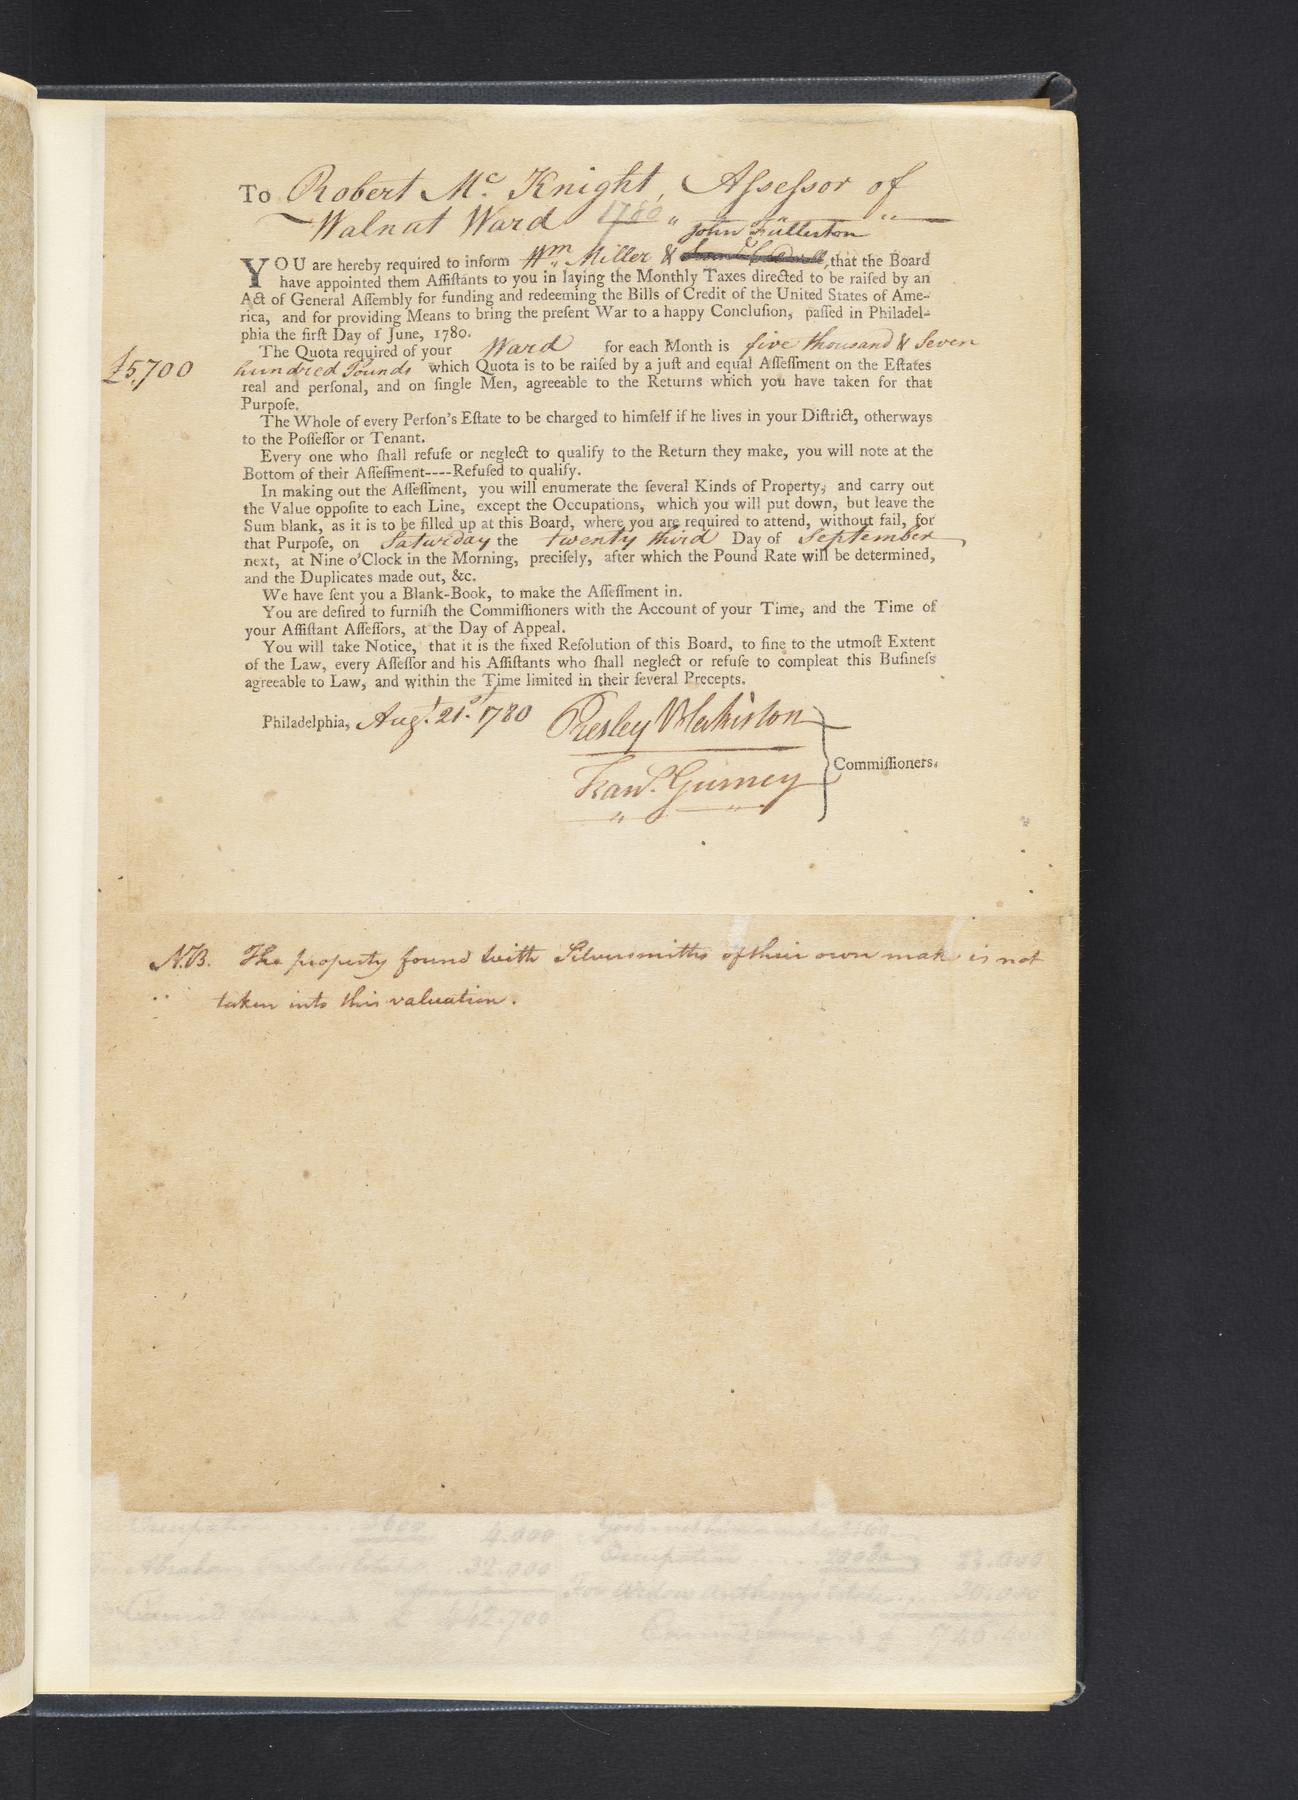 To Robert Mc. Knight, Assessor of
Walnut Ward 1780
John Fullerton
YOU are hereby required to inform Wm. Miller & , that the Board
have appointed them Aſſiſtants to you in laying the Monthly Taxes directed to be raiſed by an
Act of General Aſſembly for funding and redeeming the Bills of Credit of the United States of Ame-
rica, and for providing Means to bring the preſent War to a happy Concluſion, paſſed in Philadel-
phia the firſt Day of June, 1780.
The Quota required of your Ward for each Month is five thousand & Seven
£5,700 hundred Pounds which Quota is to be raiſed by a juſt and equal Aſſeſſment on the Eſtates
real and perſonal, and on ſingle Men, agreeable to the Returns which you have taken for that
Purpoſe.
The Whole of every Perſon's Eſtate to be charged to himſelf if he lives in your Diſtrict, otherways
to the Poſſeſſor or Tenant.
Every one who ſhall refuſe or neglect to qualify to the Return they make, you will note at the
Bottom of their Aſſeſſment----Refuſed to qualify.
In making out the Aſſeſſment, you will enumerate the ſeveral Kinds of Property, and carry out
the Value oppoſite to each Line, except the Occupations, which you will put down, but leave the
Sum blank, as it is to be filled up at this Board, where you are required to attend, without fail, for
that Purpoſe, on Saturday the twenty third Day of September
next, at Nine o'Clock in the Morning, preciſely, after which the Pound Rate will be determined,
and the Duplicates made out, &c.
We have ſent you a Blank-Book, to make the Aſſeſſment in.
You are deſired to furniſh the Commiſſioners with the Account of your Time, and the Time of
your Aſſiſtant Aſſeſſors, at the Day of Appeal.
You will take Notice, that it is the fixed Reſolution of this Board, to fine to the utmoſt Extent
of the Law, every Aſſeſſor and his Aſſiſtants who ſhall neglect or refuſe to compleat this Buſineſs
agreeable to Law, and within the Time limited in their ſeveral Precepts.
Philadelphia, Augt. 21st. 1780 Presley Blakiston
Frans. Gurney
Commiſſioners.
N.B. The property found with Silversmiths of their own make is not
taken into this valuation.
4.000
Occupation 23.000
Abraham 32.000 For Widow Anthonys 30.000
£ 442.700